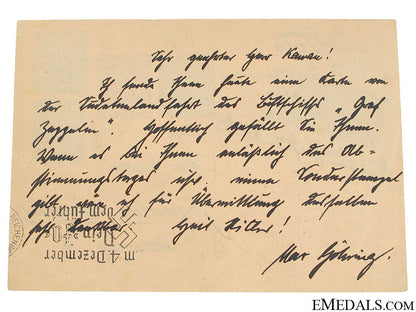 Sehr geehrter Herr Kaman!
Ich sende Ihnen heute eine Karte von
der Sudetenlandfahrt des Luftschiffs „Graf
Zeppelin". Hoffentlich gefällt Sie Ihnen.
Wenn es bei Ihnen anläßlich des Ab-
stimmungstages usw. einen Sonderstempel
gibt wär ich für Übermittlung desselben
sehr dankbar Heil Hitler!
Max Göhring.
am 4. Dezember
Dein Ja
dem Führer
REICHENB
EMEDALS.COM